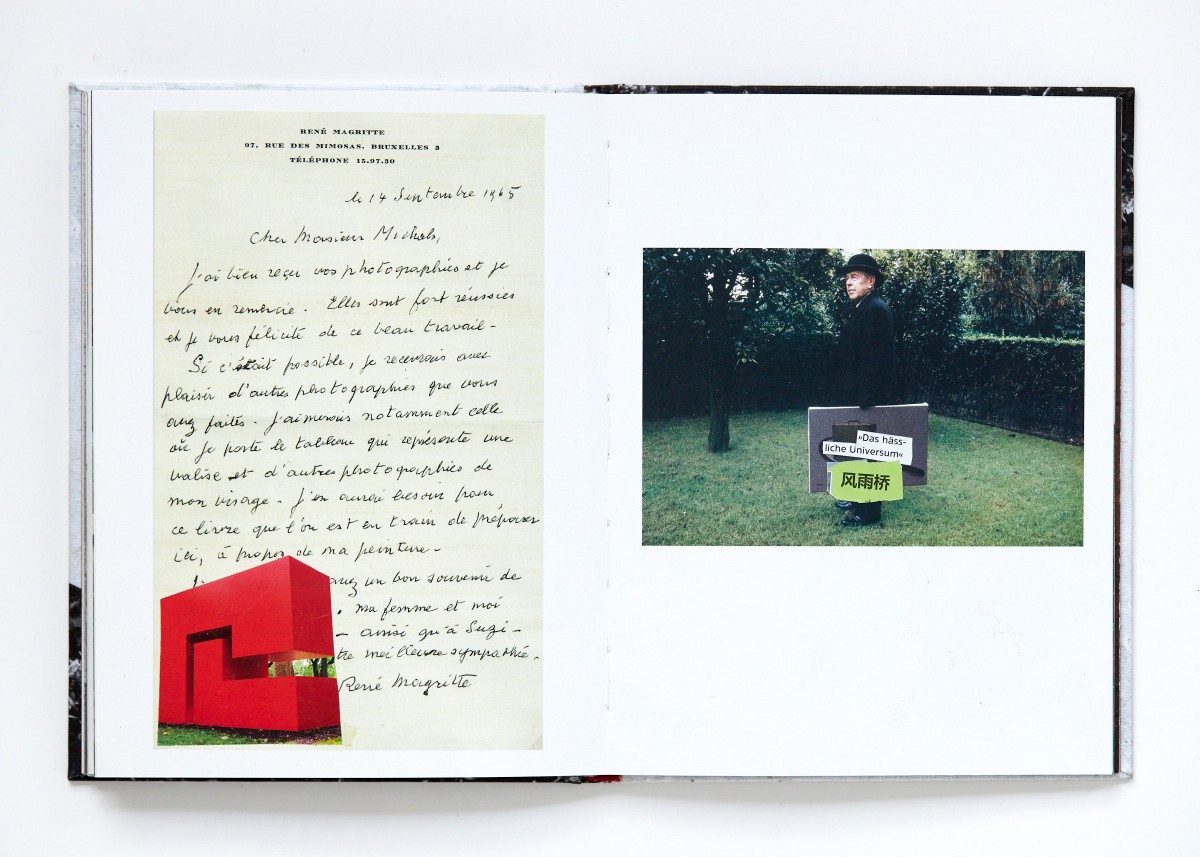 RENÉ MAGRITTE
97, RUE DES MIMOSAS, BRUXELLES 3
TÉLÉPHONE 15.97.30
le 14 Septembre 1965
Cher Monsieur Michals,
J'ai bien reçu vos photographies et je
vous en remercie. Elles sont fort réussies
et je vous félicite de ce beau travail-
Si c'était possible, je recevrais avec
plaisir d'autres photographies que vous
avez faites. J'aimerais notamment celle
où je porte le tableau qui représente une
valise et d'autres photographies de
mon visage. J'en aurai besoin pour
ce livre que l'on est en train de préparer
ici, à propos de ma peinture-
avez un bon souvenir de
. ma femme et moi
- ainsi qu'à Suzi-
tre meilleure sympathie.
René Magritte
»Das häss-
liche Universum«
风雨桥